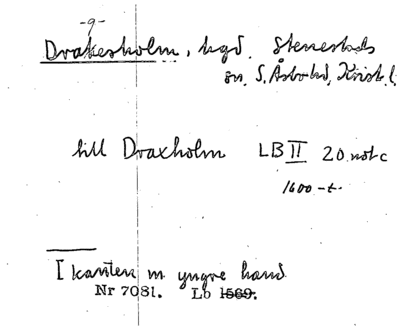 -9-
Drakesholm, hgd. Stenestads
sn. S. Åsbo hd, Krist. l.
till Draxholm LB II 20 not c
1600-t.
[ kanten m yngre hand
Nr 7081. Lb 1569.